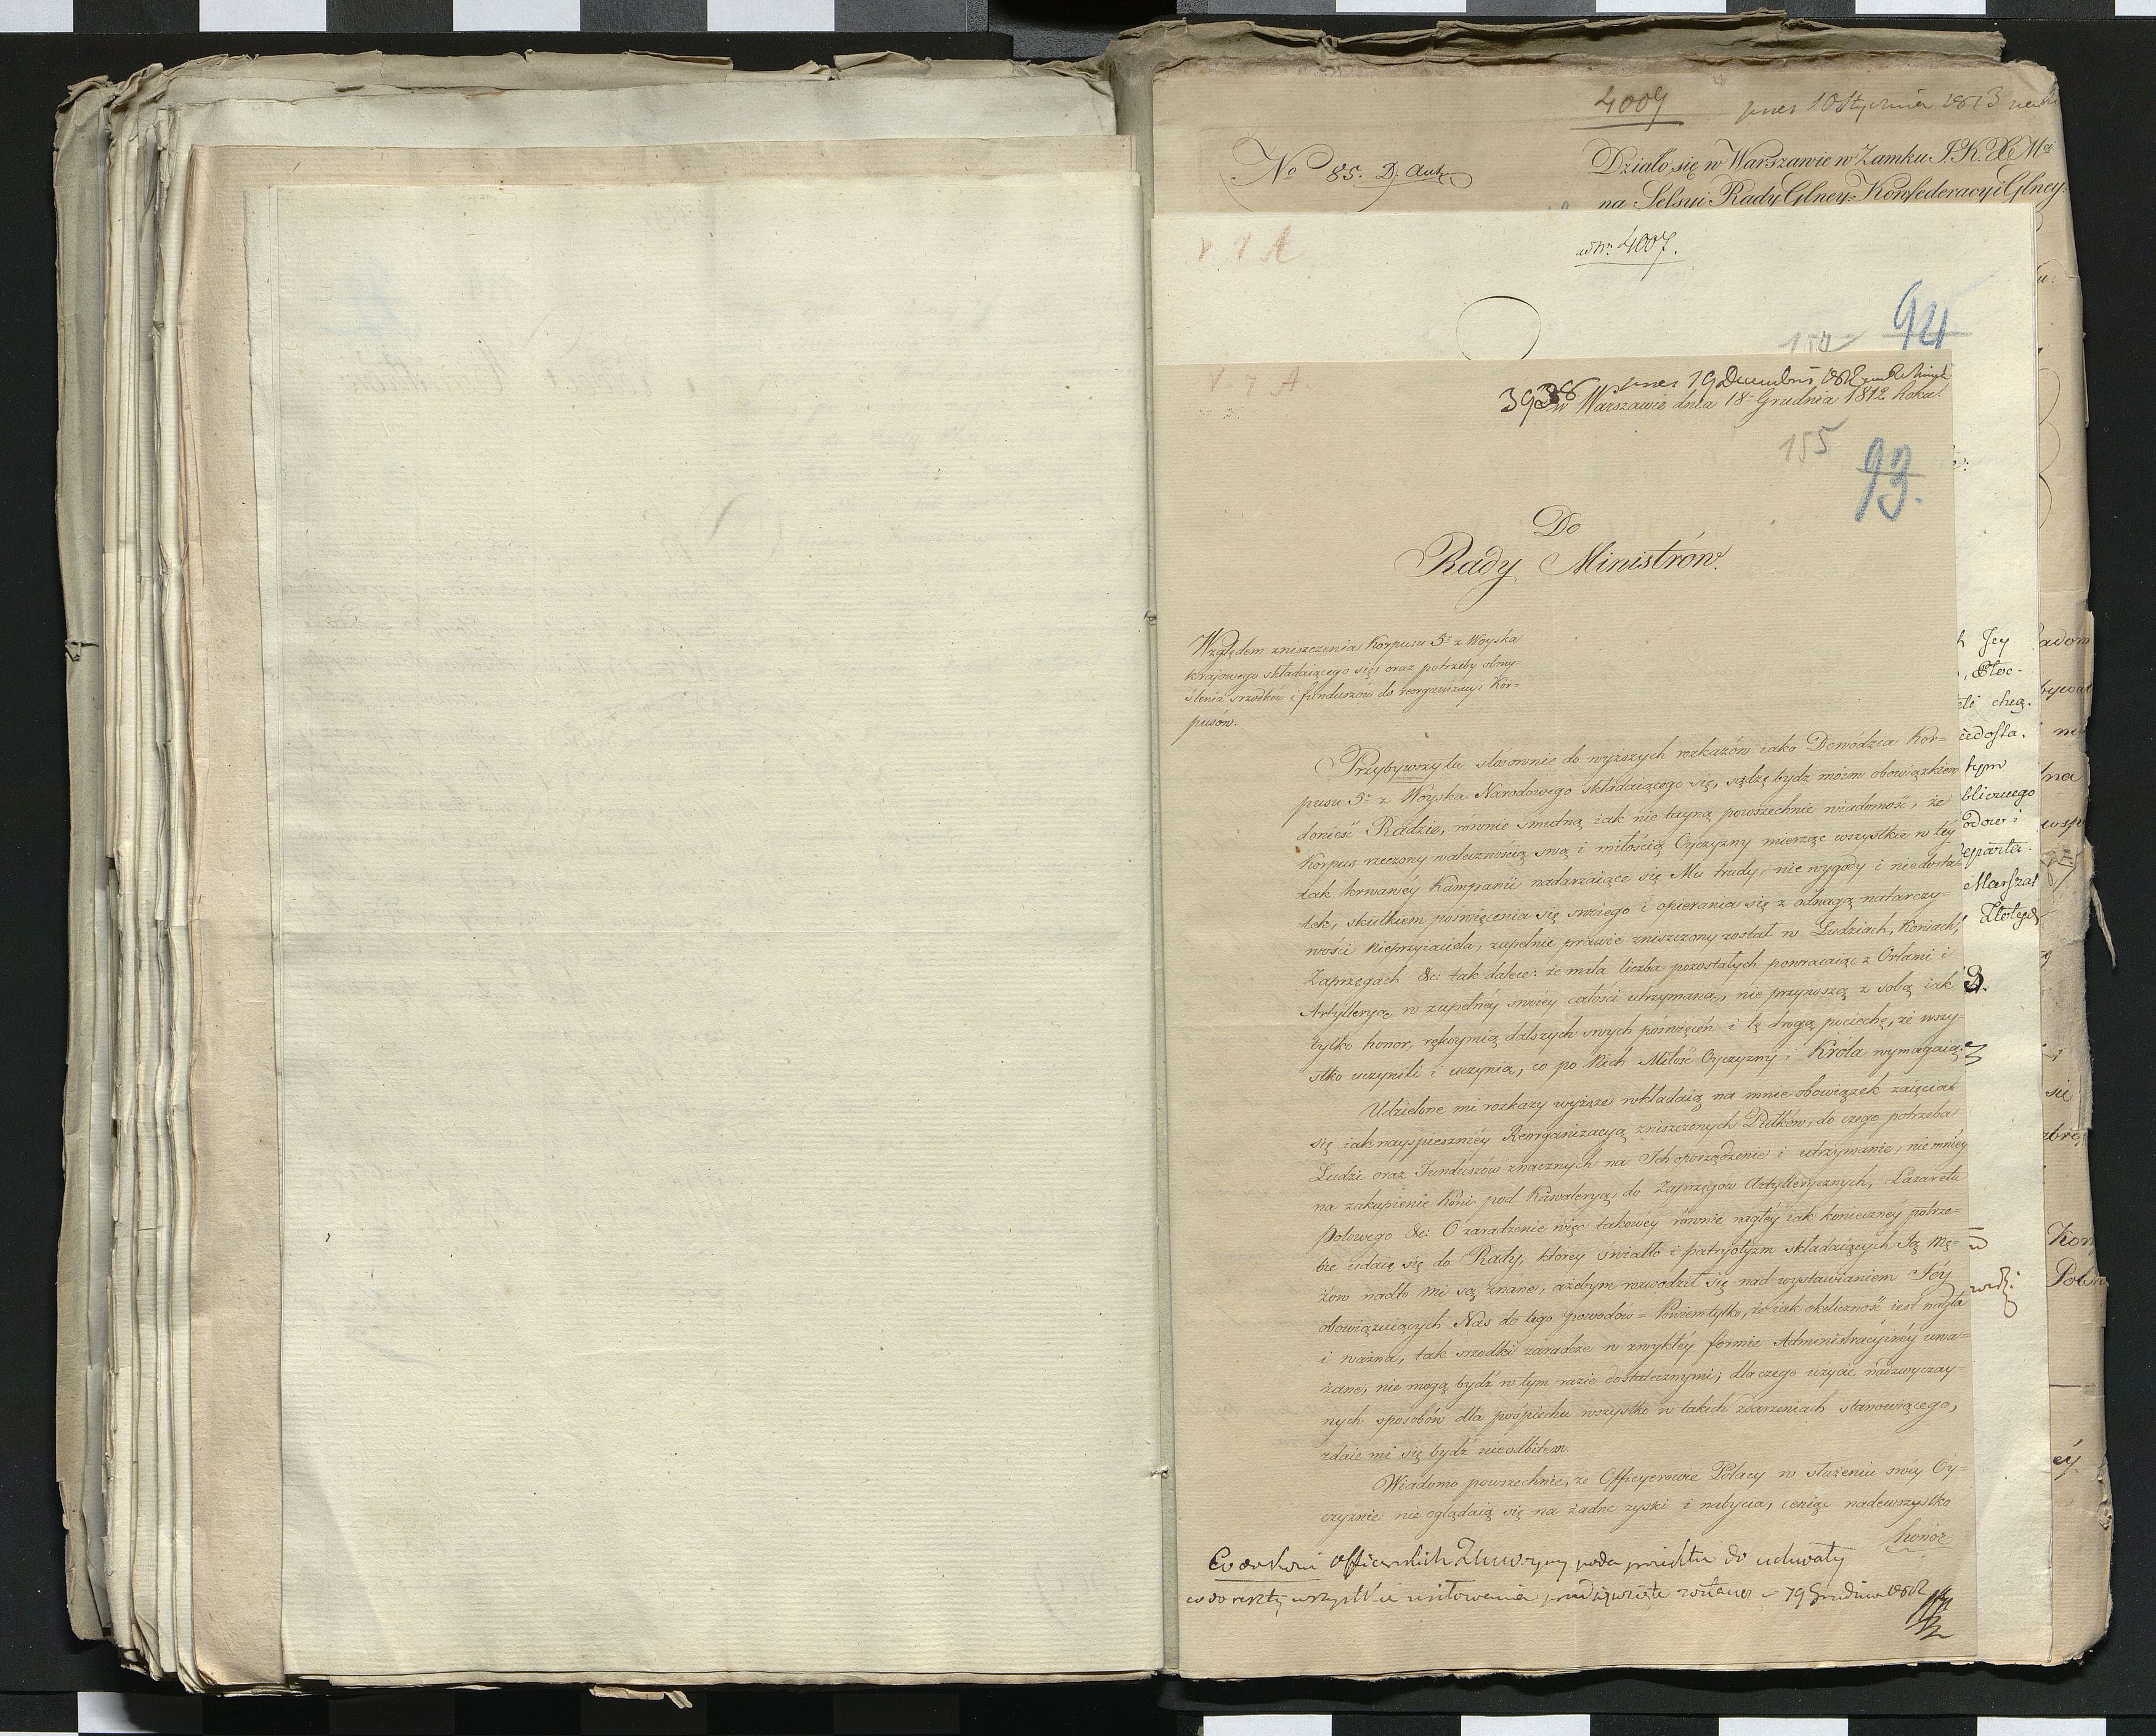 4007 prez 10 Stycznia 1813
No 85. D. Aut.
Działo się w Warszawie w Zamku J. K. X. Mci
na Sessyi Rady Glney Konfederacyi Glney.
V 7 A
ad Nr. 4007.
154 94
V 7 A.
prez 19 Decembris 1812
3938 w Warszawie dnia 18 Grudnia 1812 Roku.
155
93.
Do
Rady Ministrów.
Względem zniszczenia Korpusu 5o z Woyska
krajowego składaiącego się, oraz potrzeby obmy=
ślenia srzodków i funduszów do reorganizacyi Kor=
pusów.
Przybywszy tu stosownie do wyższych rozkazów iako Dowódzca Kor=
pusu 5o z Woyska Narodowego składaiącego się, sądzę bydź moim obowiązkiem
donieść Radzie, równie smutną iak nie tayną powszechnie wiadomość, że
Korpus rzeczony walecznością swą i miłością Oyczyzny mierząc wszystkie w téy
tak krwawéy Kampanii nadarzaiące się Mu trudy, nie wygody i niedosta=
tek, skutkiem poświęcenia się swoiego i opierania się z odwagą natarczy=
wości Nieprzyiaciela, zupełnie prawie zniszczony został w Ludziach, Koniach,
Zaprzęgach &c: tak dalece: że mała liczba pozostałych powracaiąc z Orłami i
Artylleryą w zupełnéy swoiéy całości utrzymaną, nie przynoszą z sobą iak
tylko honor, rękoymią dalszych swych poświęceń i tę drogą pociechę, że wszy=
stko uczynili i uczynią, co po Nich Miłość Oyczyzny i Króla wymagaią.
Udzielone mi rozkazy wyższe wkładaią na mnie obowiązek zaięcia
się iak nayspieszniéy Reorganizacyą zniszczonych Pułków, do czego potrzeba
Ludzi oraz Funduszów znacznych na Ich oporządzenie i utrzymanie, niemniéy
na zakupienie Koni pod Kawaleryą, do Zaprzęgow Artyllerycznych, Lazaretu
Polowego &c: O zaradzenie więc takowéy równie nagłéy iak konieczney potrze=
bie udaię się do Rady, któréy światło i patryotyzm składaiących Ią Mę=
żów nadto mi są znane, ażebym rozwodził się nad wystawianiem Iéy
obowiązuiących Nas do tego powodów = Powiem tylko, że iak okoliczność iest nagła
i ważna, tak srzodki zaradcze w zwykłéy formie Administracyinéy uwa=
żane, nie mogą bydź w tym razie dostatecznymi; dla czego użycie nadzwyczay=
nych sposobów dla pośpiechu wszystko w takich zdarzeniach stanowiącego,
zdaie mi się bydź nieodbitem.
Wiadomo powszechnie, że Officyerowie Polacy w służeniu swéy Oy=
czyznie nie oglądaią się na żadne zyski i nabycia, ceniąc nadewszystko
honor
Co do koni officerskich poda proiekta do uchwały
co do reszty wszystkie usiłowania przedsięwzięte zostaną – 19 Grudnia 1812